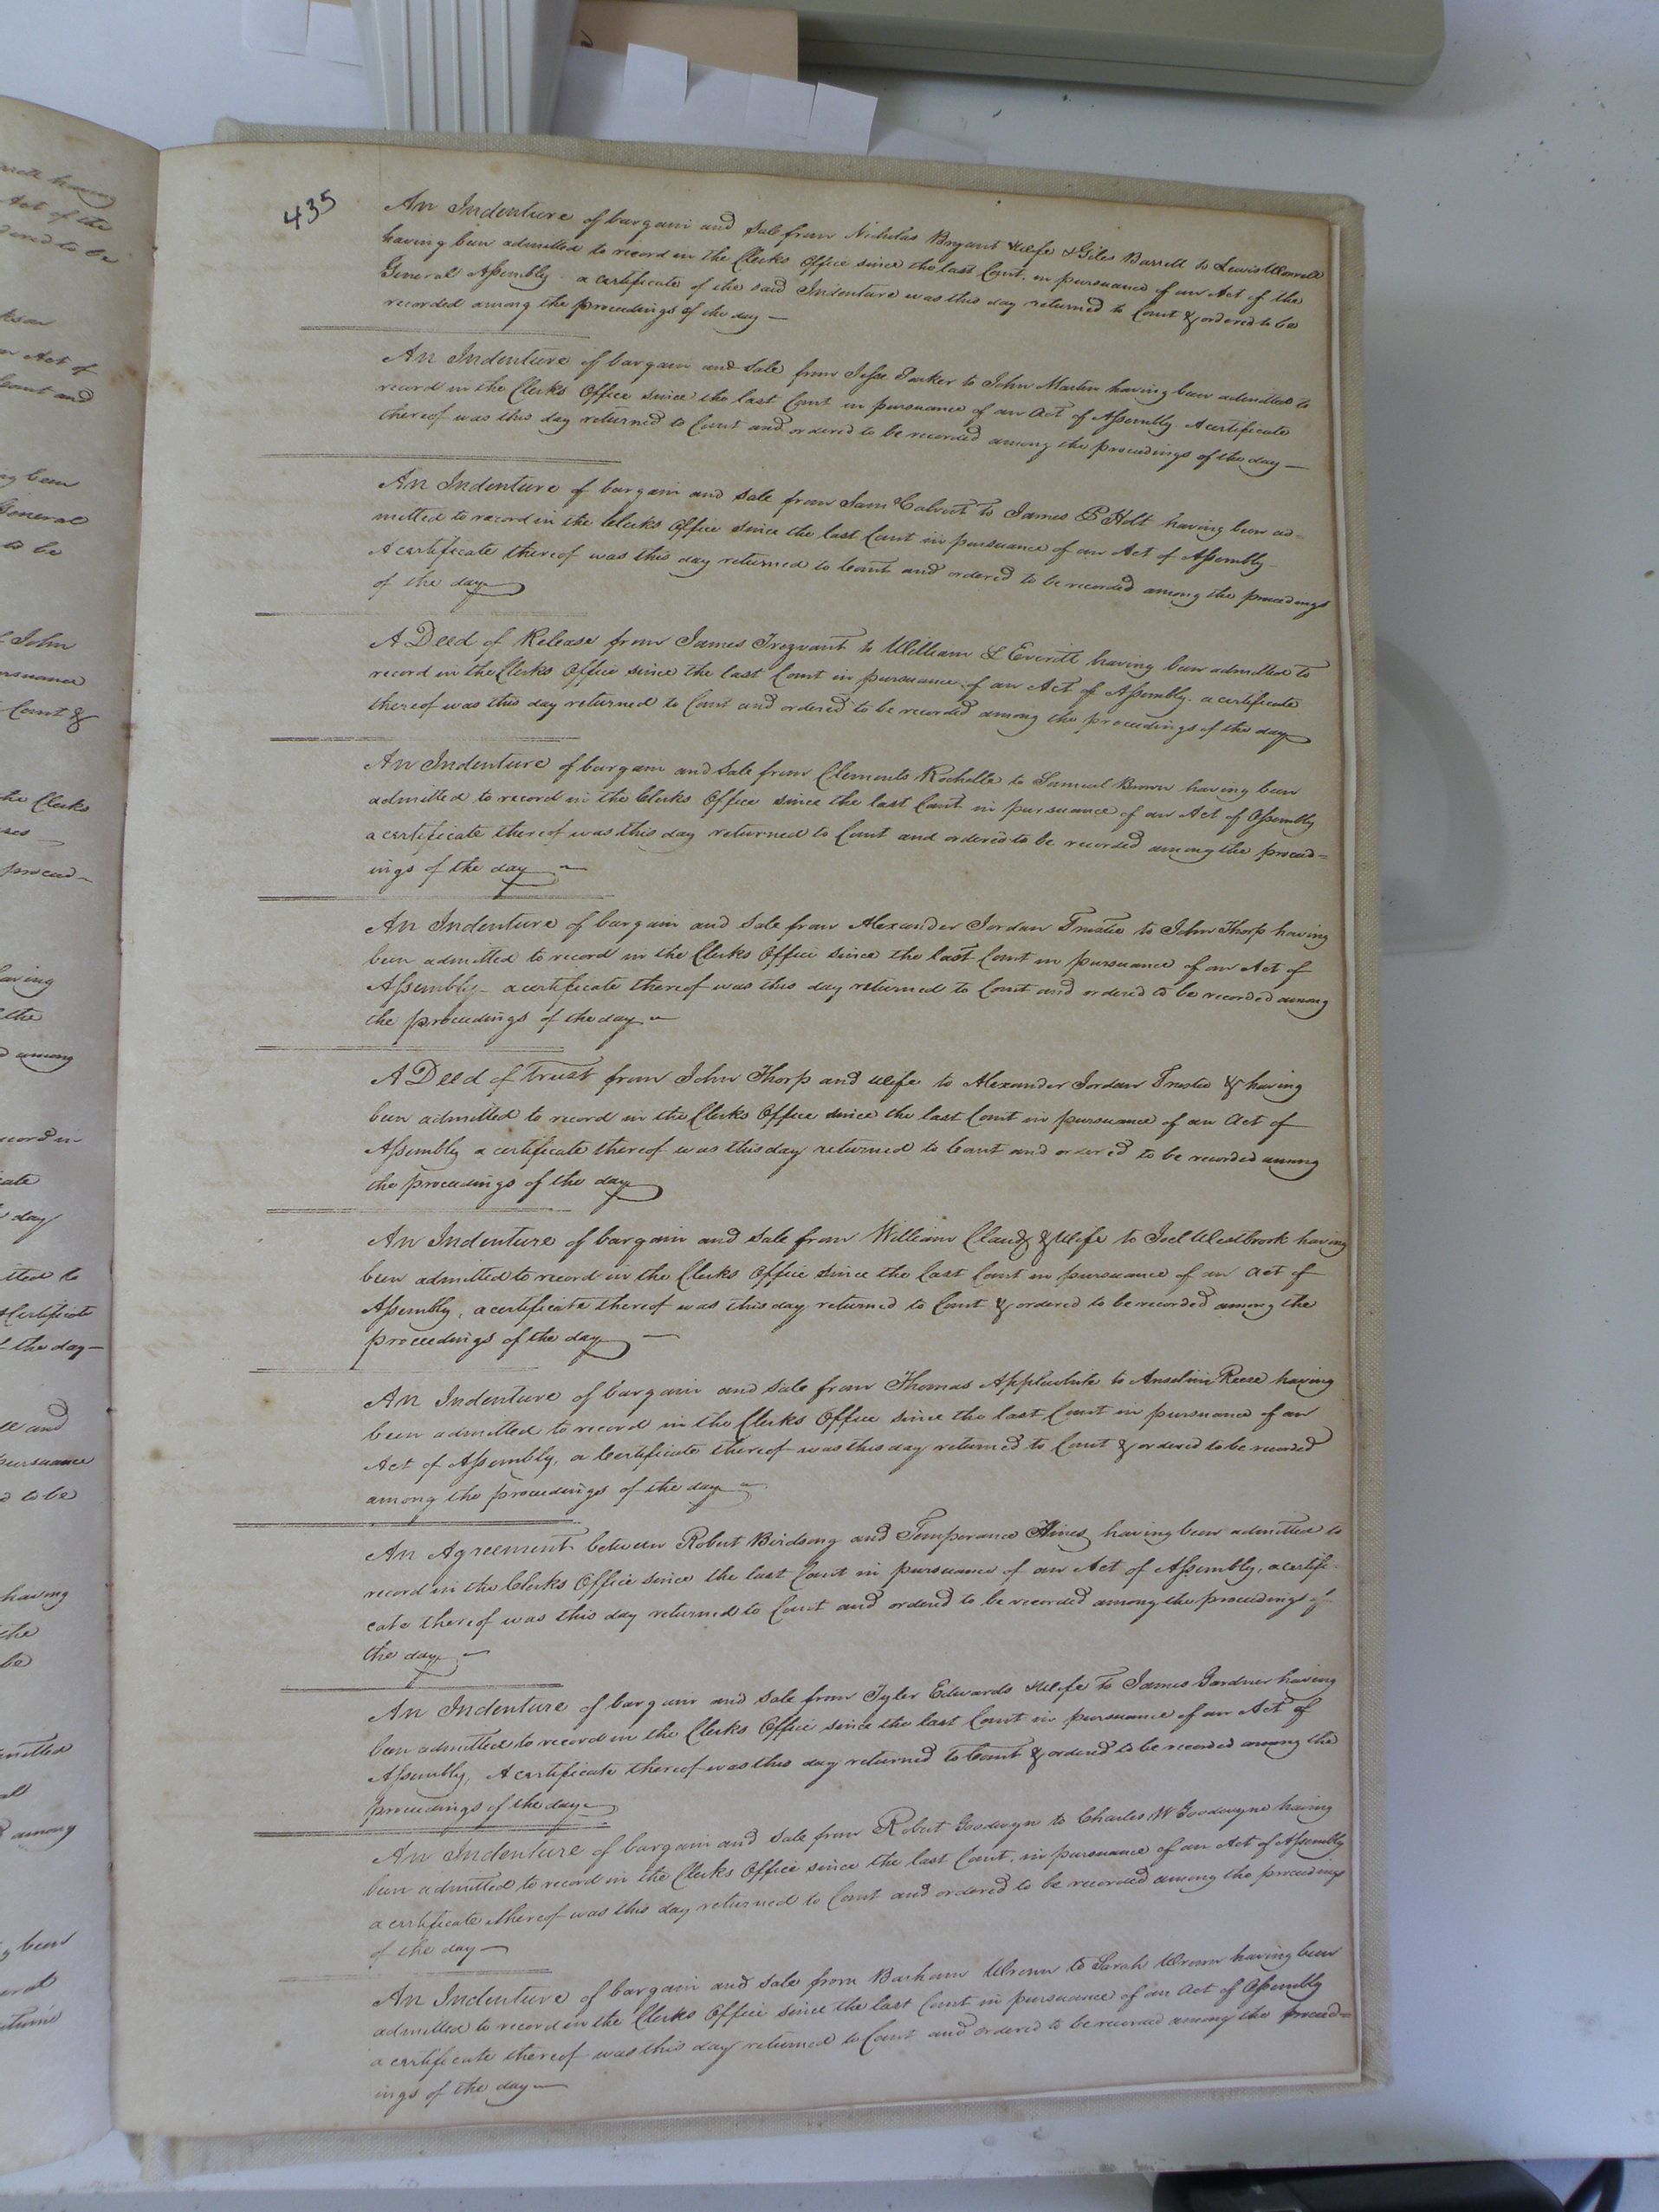 435
An Indenture of bargain and Sale from Nicholas Bryant & wife & Giles Barrett to Lewis Worrell
having been admitted to record in the Clerks Office since the last Court. in pursuance of an Act of the
General Assembly. a certificate of the said Indenture was this day returned to Court & ordered to be
recorded among the proceedings of the day —
An Indenture of bargain and Sale from Jesse Parker to John Martin having been admitted to
record in the Clerks Office since the last Court in pursuance of an Act of Assembly. A certificate
thereof was this day returned to Court and ordered to be recorded among the proceedings of the day —
An Indenture of bargain and Sale from Sam Calvert to James P Holt having been ad=
mitted to record in the Clerks Office since the last Court in pursuance of an Act of Assembly
A certificate thereof was this day returned to Court and ordered to be recorded among the proceedings
of the day
A Deed of Release from James Trezvant to William L Everitt having been admitted to
record in the Clerks Office since the last Court in pursuance of an Act of Assembly. a certificate
thereof was this day returned to Court and ordered to be recorded among the proceedings of the day
An Indenture of bargain and Sale from Clements Rochelle to Samuel Brown having been
admitted to record in the Clerks Office since the last Court in pursuance of an Act of Assembly
a certificate thereof was this day returned to Court and ordered to be recorded among the proceed=
ings of the day
An Indenture of bargain and Sale from Alexander Jordan Trustee to John Thorp having
been admitted to record in the Clerks Office since the last Court in pursuance of an Act of
Assembly — a certificate thereof was this day returned to Court and ordered to be recorded among
the proceedings of the day
A Deed of trust from John Thorp and wife to Alexander Jordan Trustee & having
been admitted to record in the Clerks Office since the last Court in pursuance of an Act of
Assembly a certificate thereof was this day returned to Court and ordered to be recorded among
the proceedings of the day
An Indenture of bargain and Sale from William Claud & Wife to Joel Westbrook having
been admitted to record in the Clerks Office since the last Court in pursuance of an act of
Assembly, a certificate thereof was this day returned to Court & ordered to be recorded among the
proceedings of the day —
An Indenture of bargain and Sale from Thomas Applewhite to Anselm Reese having
been admitted to record in the Clerks Office since the last Court in pursuance of an
Act of Assembly, a Certificate thereof was this day returned to Court & ordered to be recorded
among the proceedings of the day
An Agreement between Robert Birdsong and Temperance Hines having been admitted to
record in the Clerks Office since the last Court in pursuance of an Act of Assembly, a certifi-
cate thereof was this day returned to Court and ordered to be recorded among the proceedings of
the day
An Indenture of bargain and Sale from Tyler Edwards & Wife to James Gardner having
been admitted to record in the Clerks Office since the last Court in pursuance of an Act of
Assembly, A certificate thereof was this day returned to Court & ordered to be recorded among the
proceedings of the day
An Indenture of bargain and Sale from Robert Goodwyn to Charles W Goodwyn having
been admitted to record in the Clerks Office since the last Court, in pursuance of an Act of Assembly
a certificate thereof was this day returned to Court and ordered to be recorded among the proceedings
of the day —
An Indenture of bargain and Sale from Basham Wrenn to Sarah Wrenn having been
admitted to record in the Clerks Office since the last Court in pursuance of an act of Assembly
a certificate thereof was this day returned to Court and ordered to be recorded among the proceed=
ings of the day —